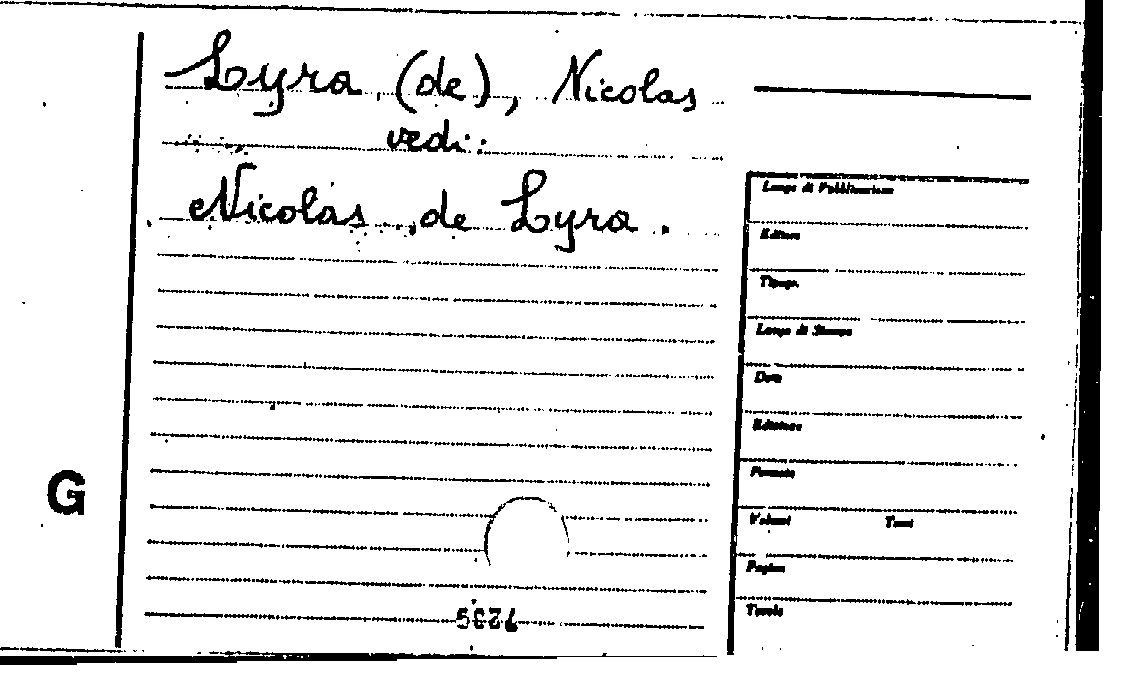 Lyra (de), Nicolas
vedi:
Nicolas de Lyra.
Luogo di Pubblicazione
Editore
Tipogr.
Luogo di Stampa
Data
Edizione
Formato
Volumi Tomi
Pagine
Tavole
G